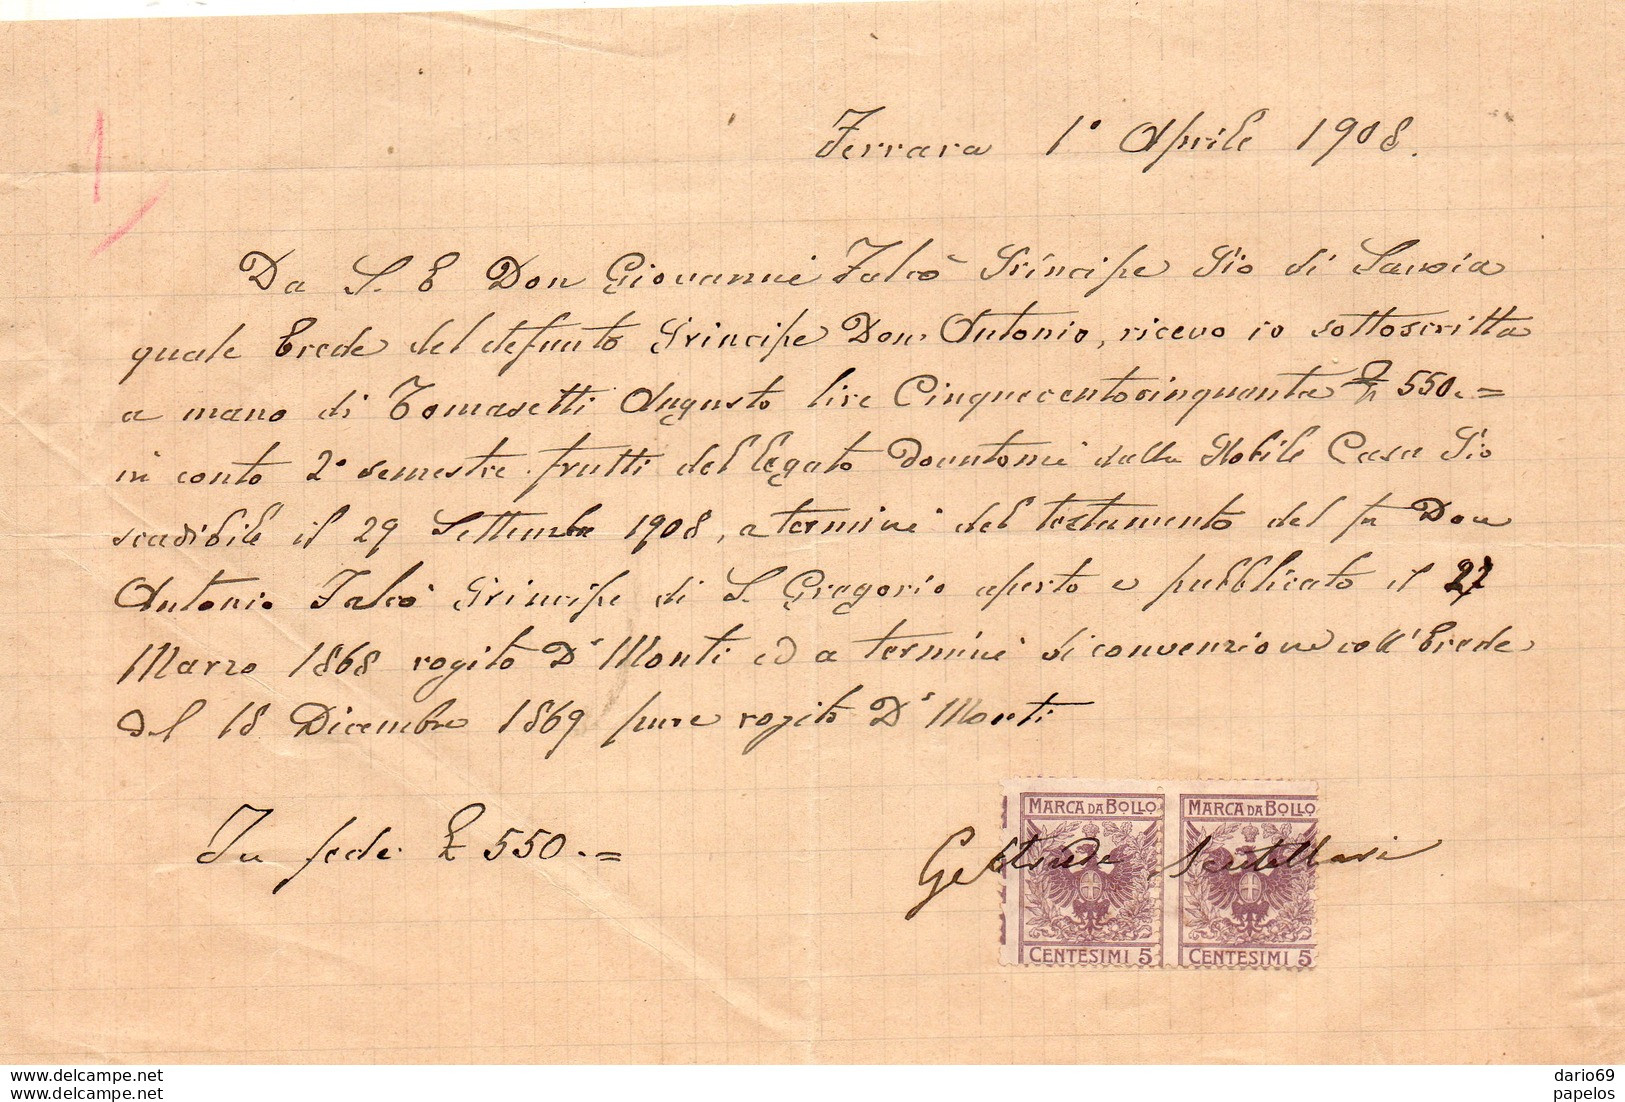 Ferrara 1° Aprile 1908.
Da S. E Don Giovanni Falcò Principe Pio di Savoia
quale Erede del defunto Principe Don Antonio, ricevo io sottoscritta
a mano di Tomasetti Augusto lire Cinquecentocinquanta £ 550.=
in conto 2° semestre frutti del legato dovutomi dalla Nobile Casa Pio
scadibile il 29 Settembre 1908, a termini del testamento del fu Don
Antonio Falcò Principe di S. Gregorio aperto e pubblicato il 27
Marzo 1868 rogito Dr Monti ed a termini di convenzione coll'Erede
del 18 Dicembre 1869 pure rogito Dr Monti
In fede £ 550.=
Geltrude Scutellari
MARCA DA BOLLO MARCA DA BOLLO
CENTESIMI 5 CENTESIMI 5
www.delcampe.net dario69
www.delcampe.net papelos